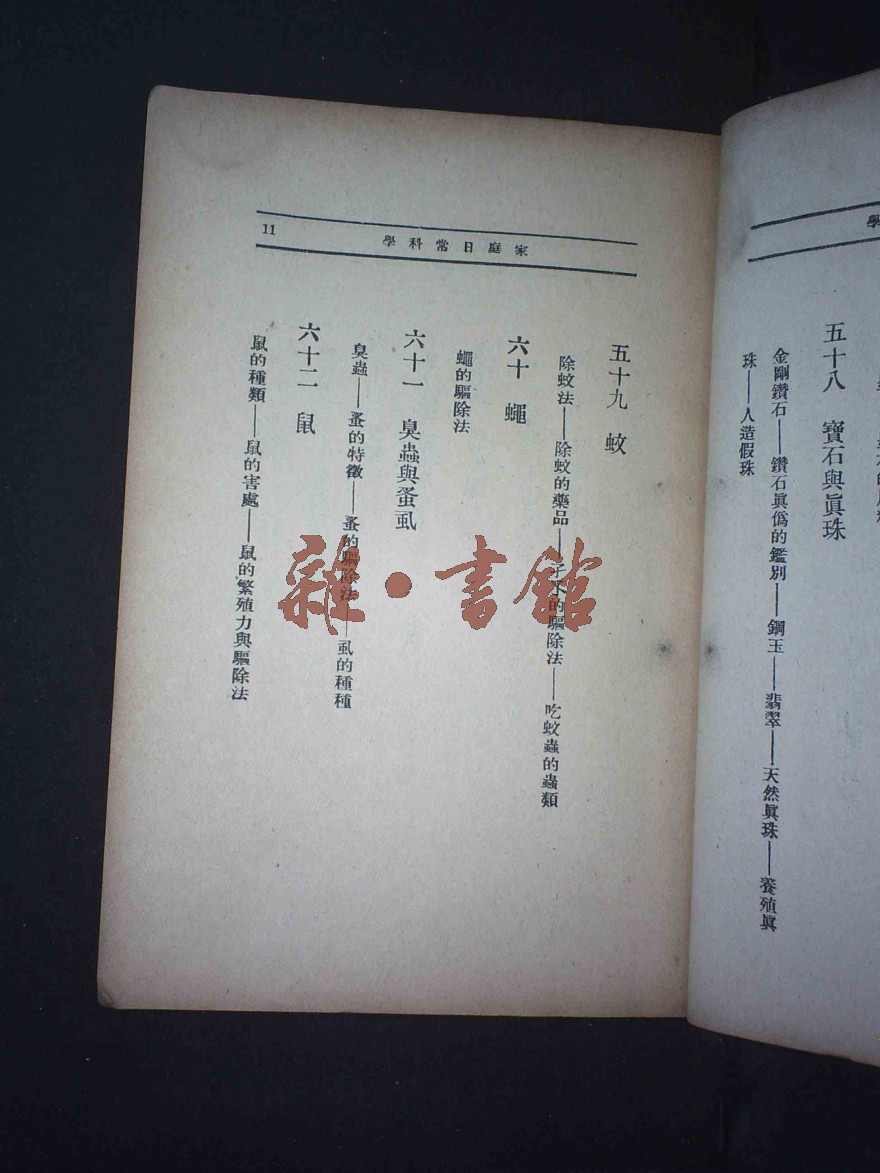 學
五十八 寶石與眞珠
金剛鑽石——鑽石眞僞的鑑別——鋼玉——翡翠——天然眞珠——養殖眞
珠——人造假珠
家庭日常科學
11
五十九 蚊
除蚊法——除蚊的藥品——孑孓的驅除法——吃蚊蟲的蟲類
六十 蠅
蠅的驅除法
六十一 臭蟲與蚤虱
臭蟲——蚤的特徵——蚤的驅除法——虱的種種
六十二 鼠
鼠的種類——鼠的害處——鼠的繁殖力與驅除法
雜·書館